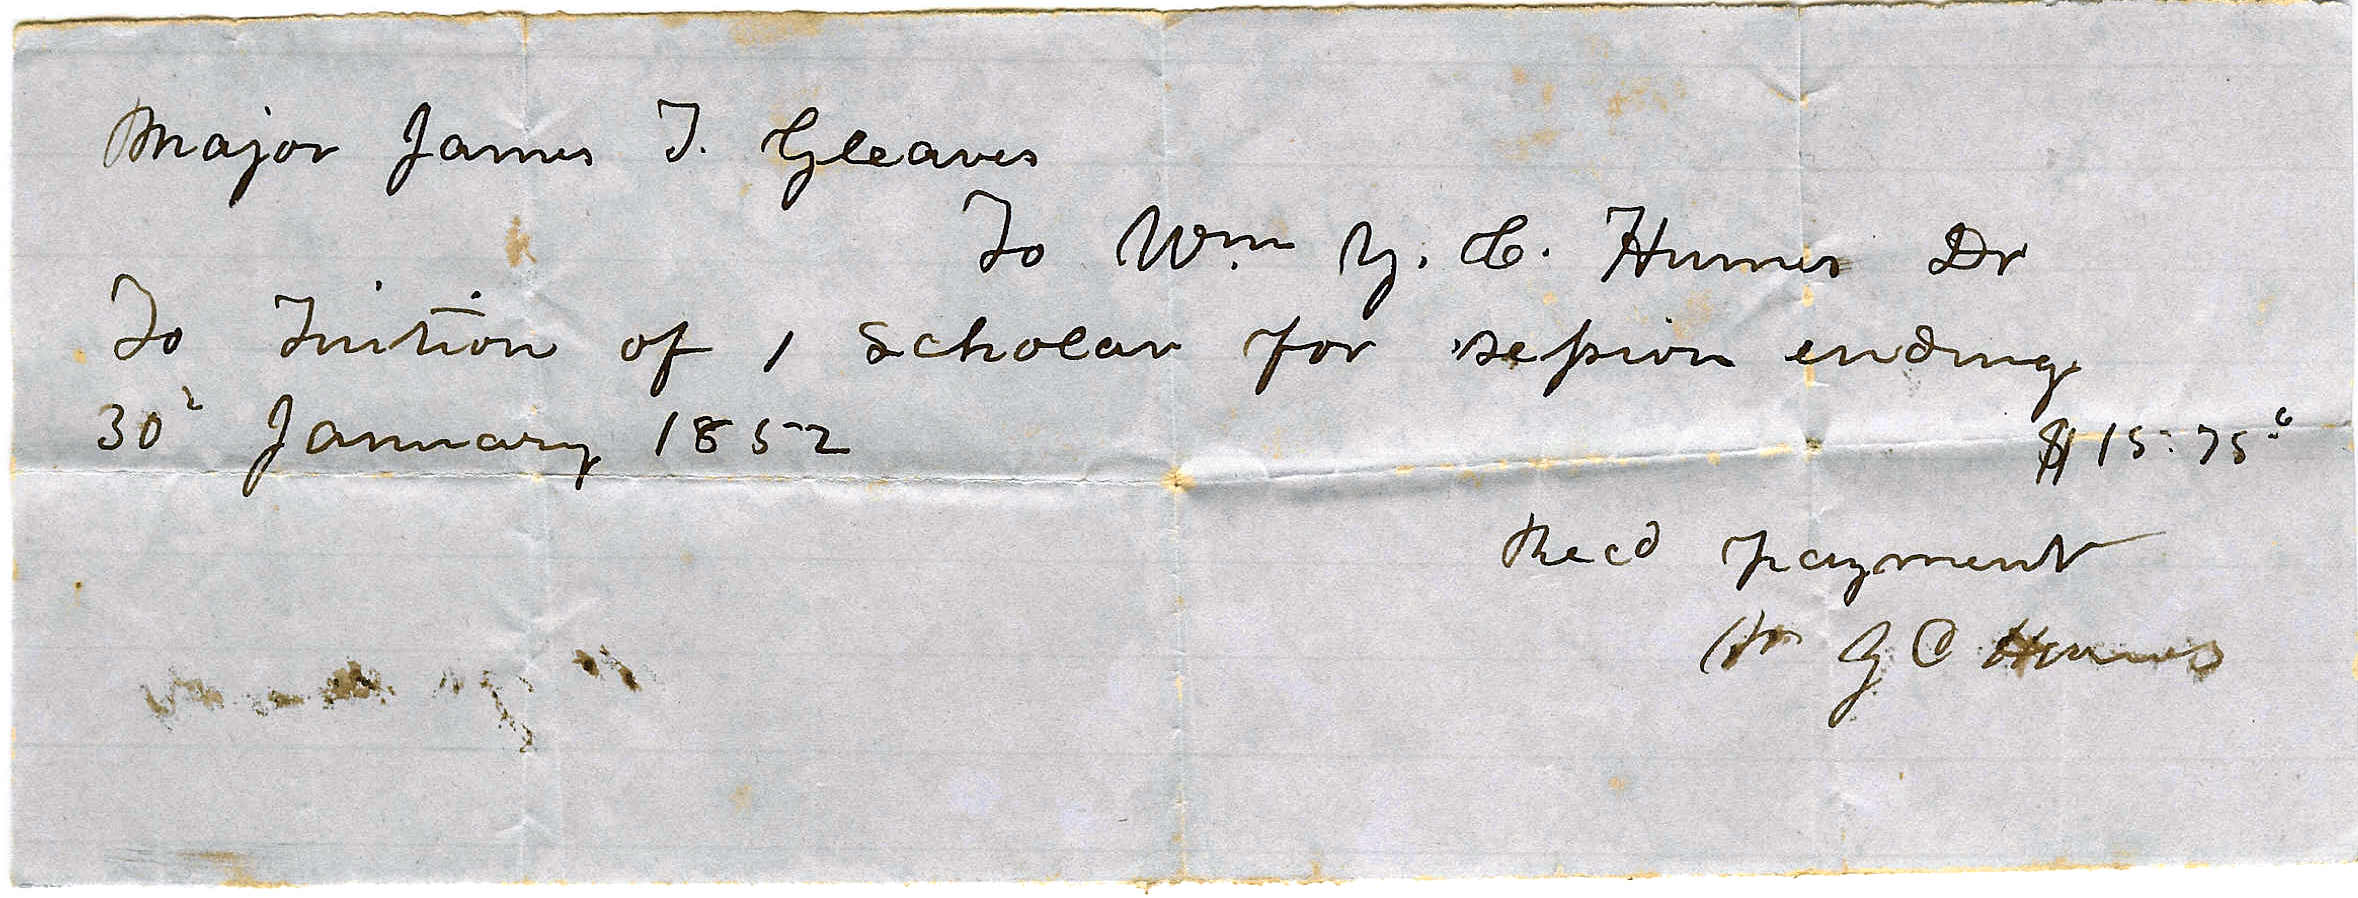 Major James T. Gleaves
To Wm Y. C. Humes Dr
To Tuition of 1 Scholar for session ending
30th January 1852 $15.75c
Recd payment
Wm Y C Humes